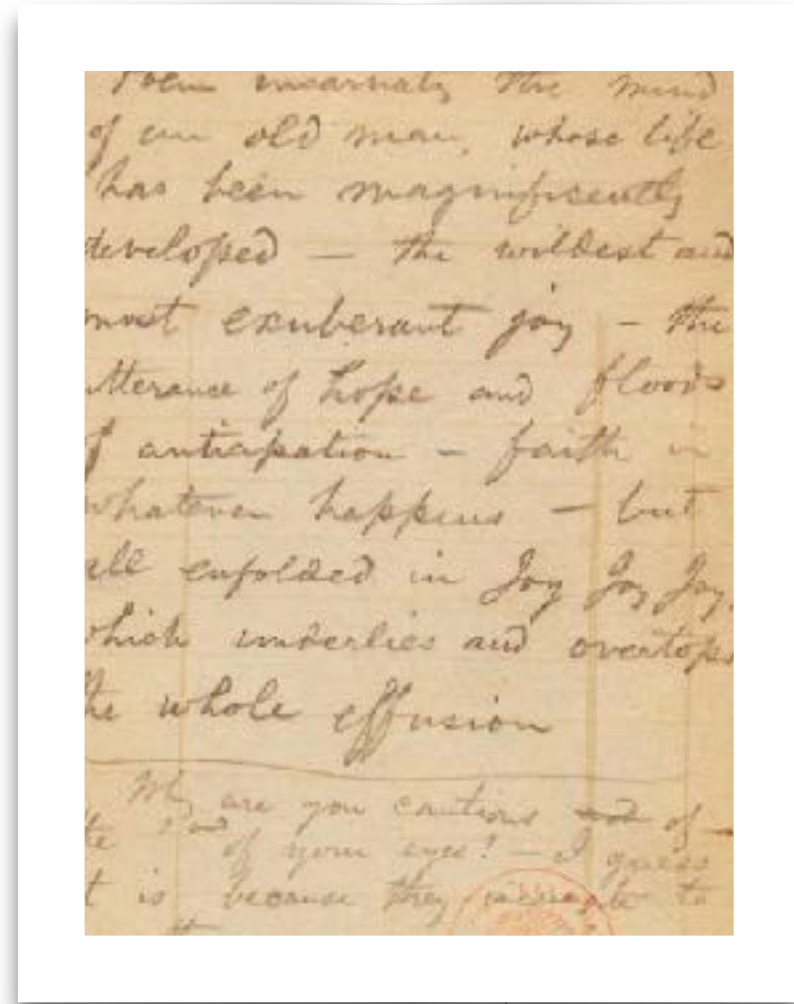 Poem incarnating the mind
of an old man, whose life
has been magnificently
developed — the wildest and
most exuberant joy — the
utterance of hope and floods
of anticipation — faith in
whatever happens — but
all enfolded in Joy Joy Joy,
which underlies and overtops
the whole effusion
Why are you cautious of
of your eyes? — I guess
t is because they to